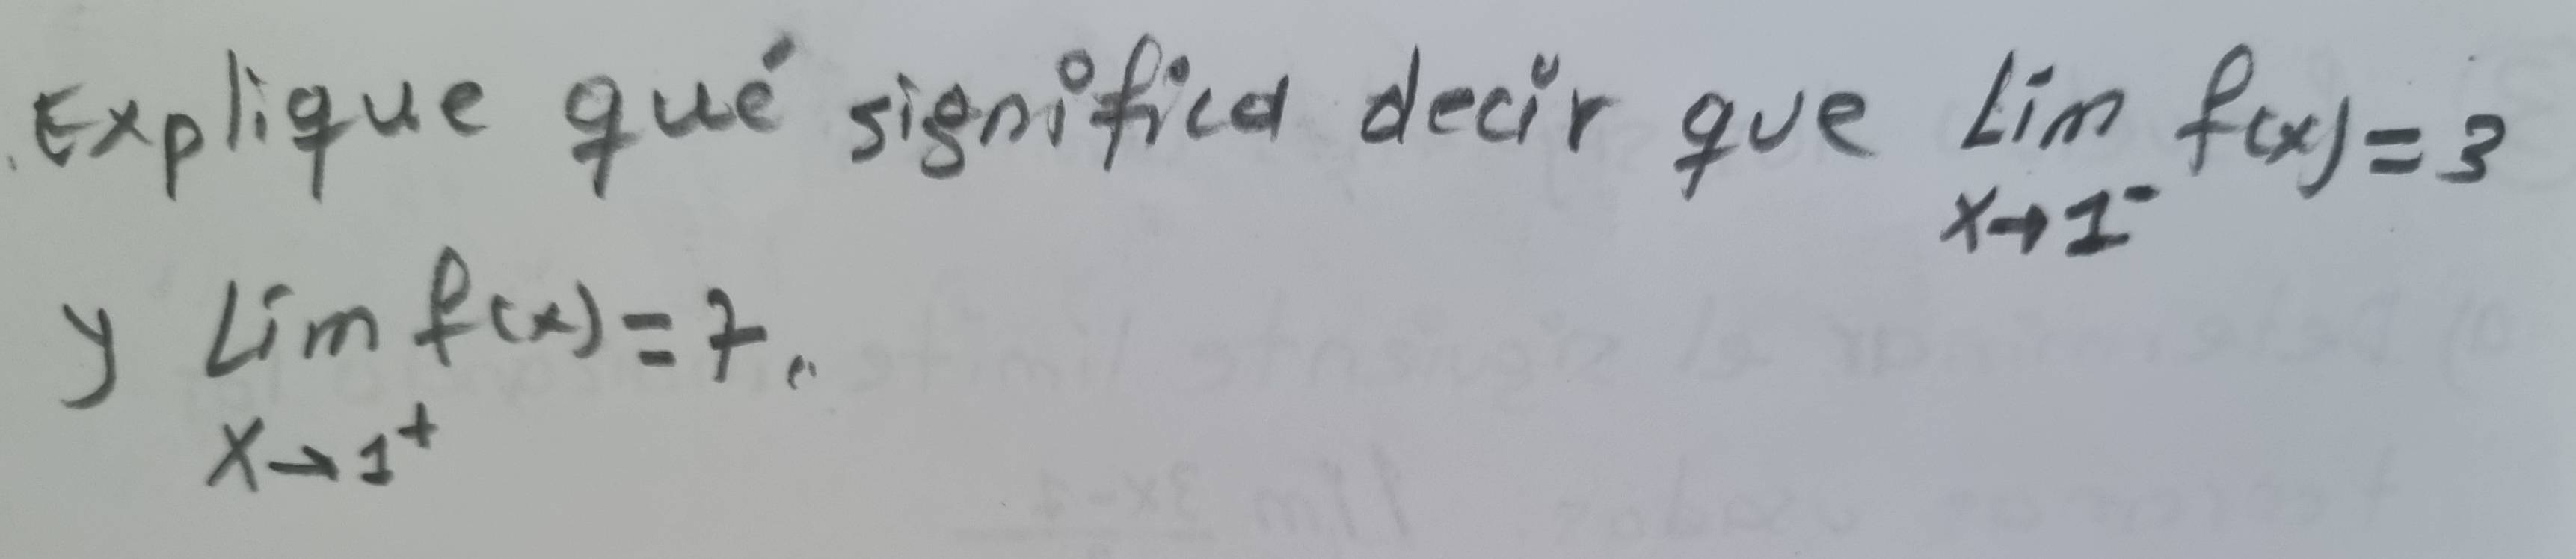 Explique qué significa decir que Lim f(x) = 3
x→1⁻
y Lim f(x) = 7.
x→1⁺